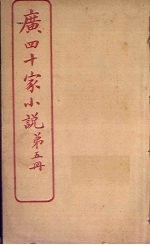 廣四十家小説第五冊